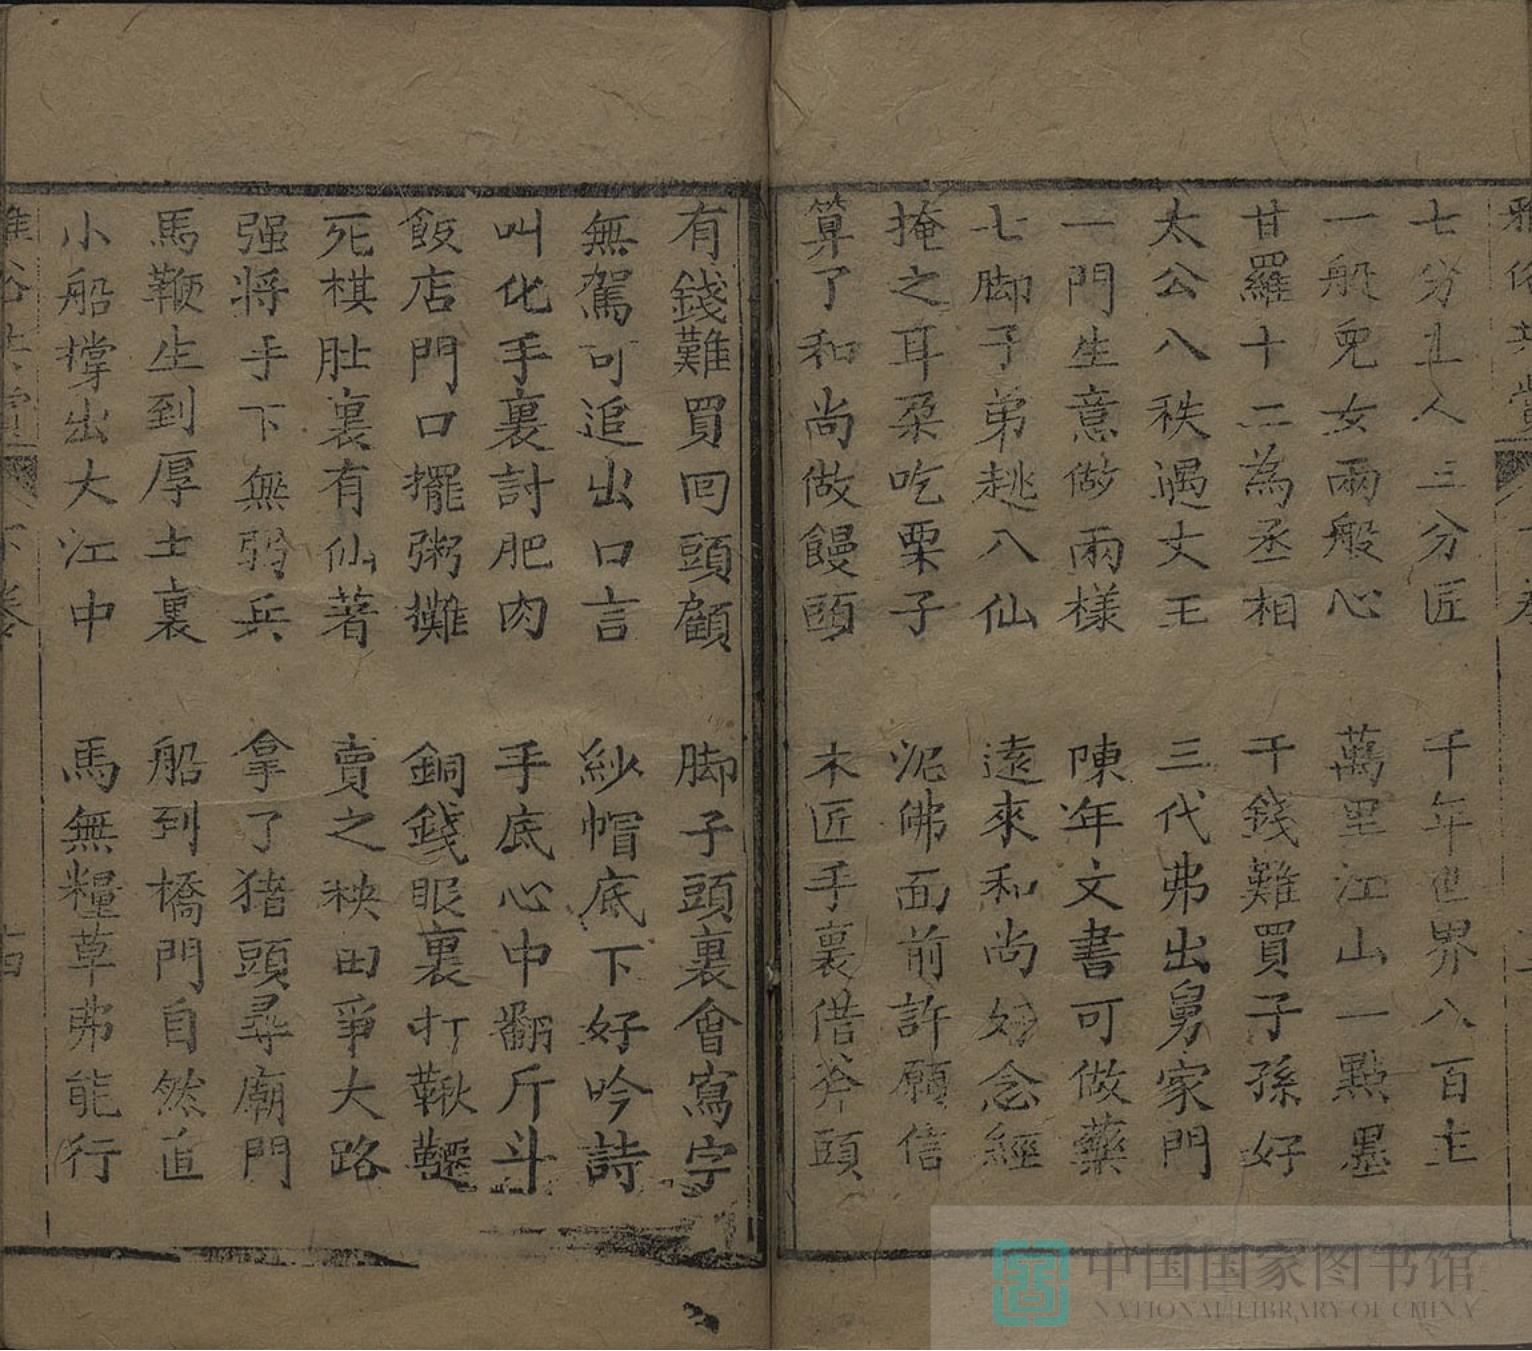 七分主人三分匠　千年世界八百主
一般兒女兩般心　萬里江山一點墨
甘羅十二為丞相　千錢難買子孫好
太公八秩遇文王　三代弗出舅家門
一門生意做兩樣　陳年文書可做藥
七脚子弟趒八仙　遠來和尚好念經
掩之耳朶吃栗子　泥佛面前許願信
算了和尚做饅頭　木匠手裏借斧頭
有錢難買回頭顧　脚子頭裏會寫字
無駕可追出口言　紗帽底下好吟詩
叫化手裏討肥肉　手底心中翻斤斗
飯店門口擺粥攤　銅錢眼裏打鞦韆
死棋肚裏有仙著　賣之秧田爭大路
强将手下無弱兵　拿了猪頭尋廟門
馬鞭生到厚土裏　船到橋門自然直
小船撑出大江中　馬無糧草弗能行
下卷
中国国家图书馆
NATIONAL LIBRARY OF CHINA